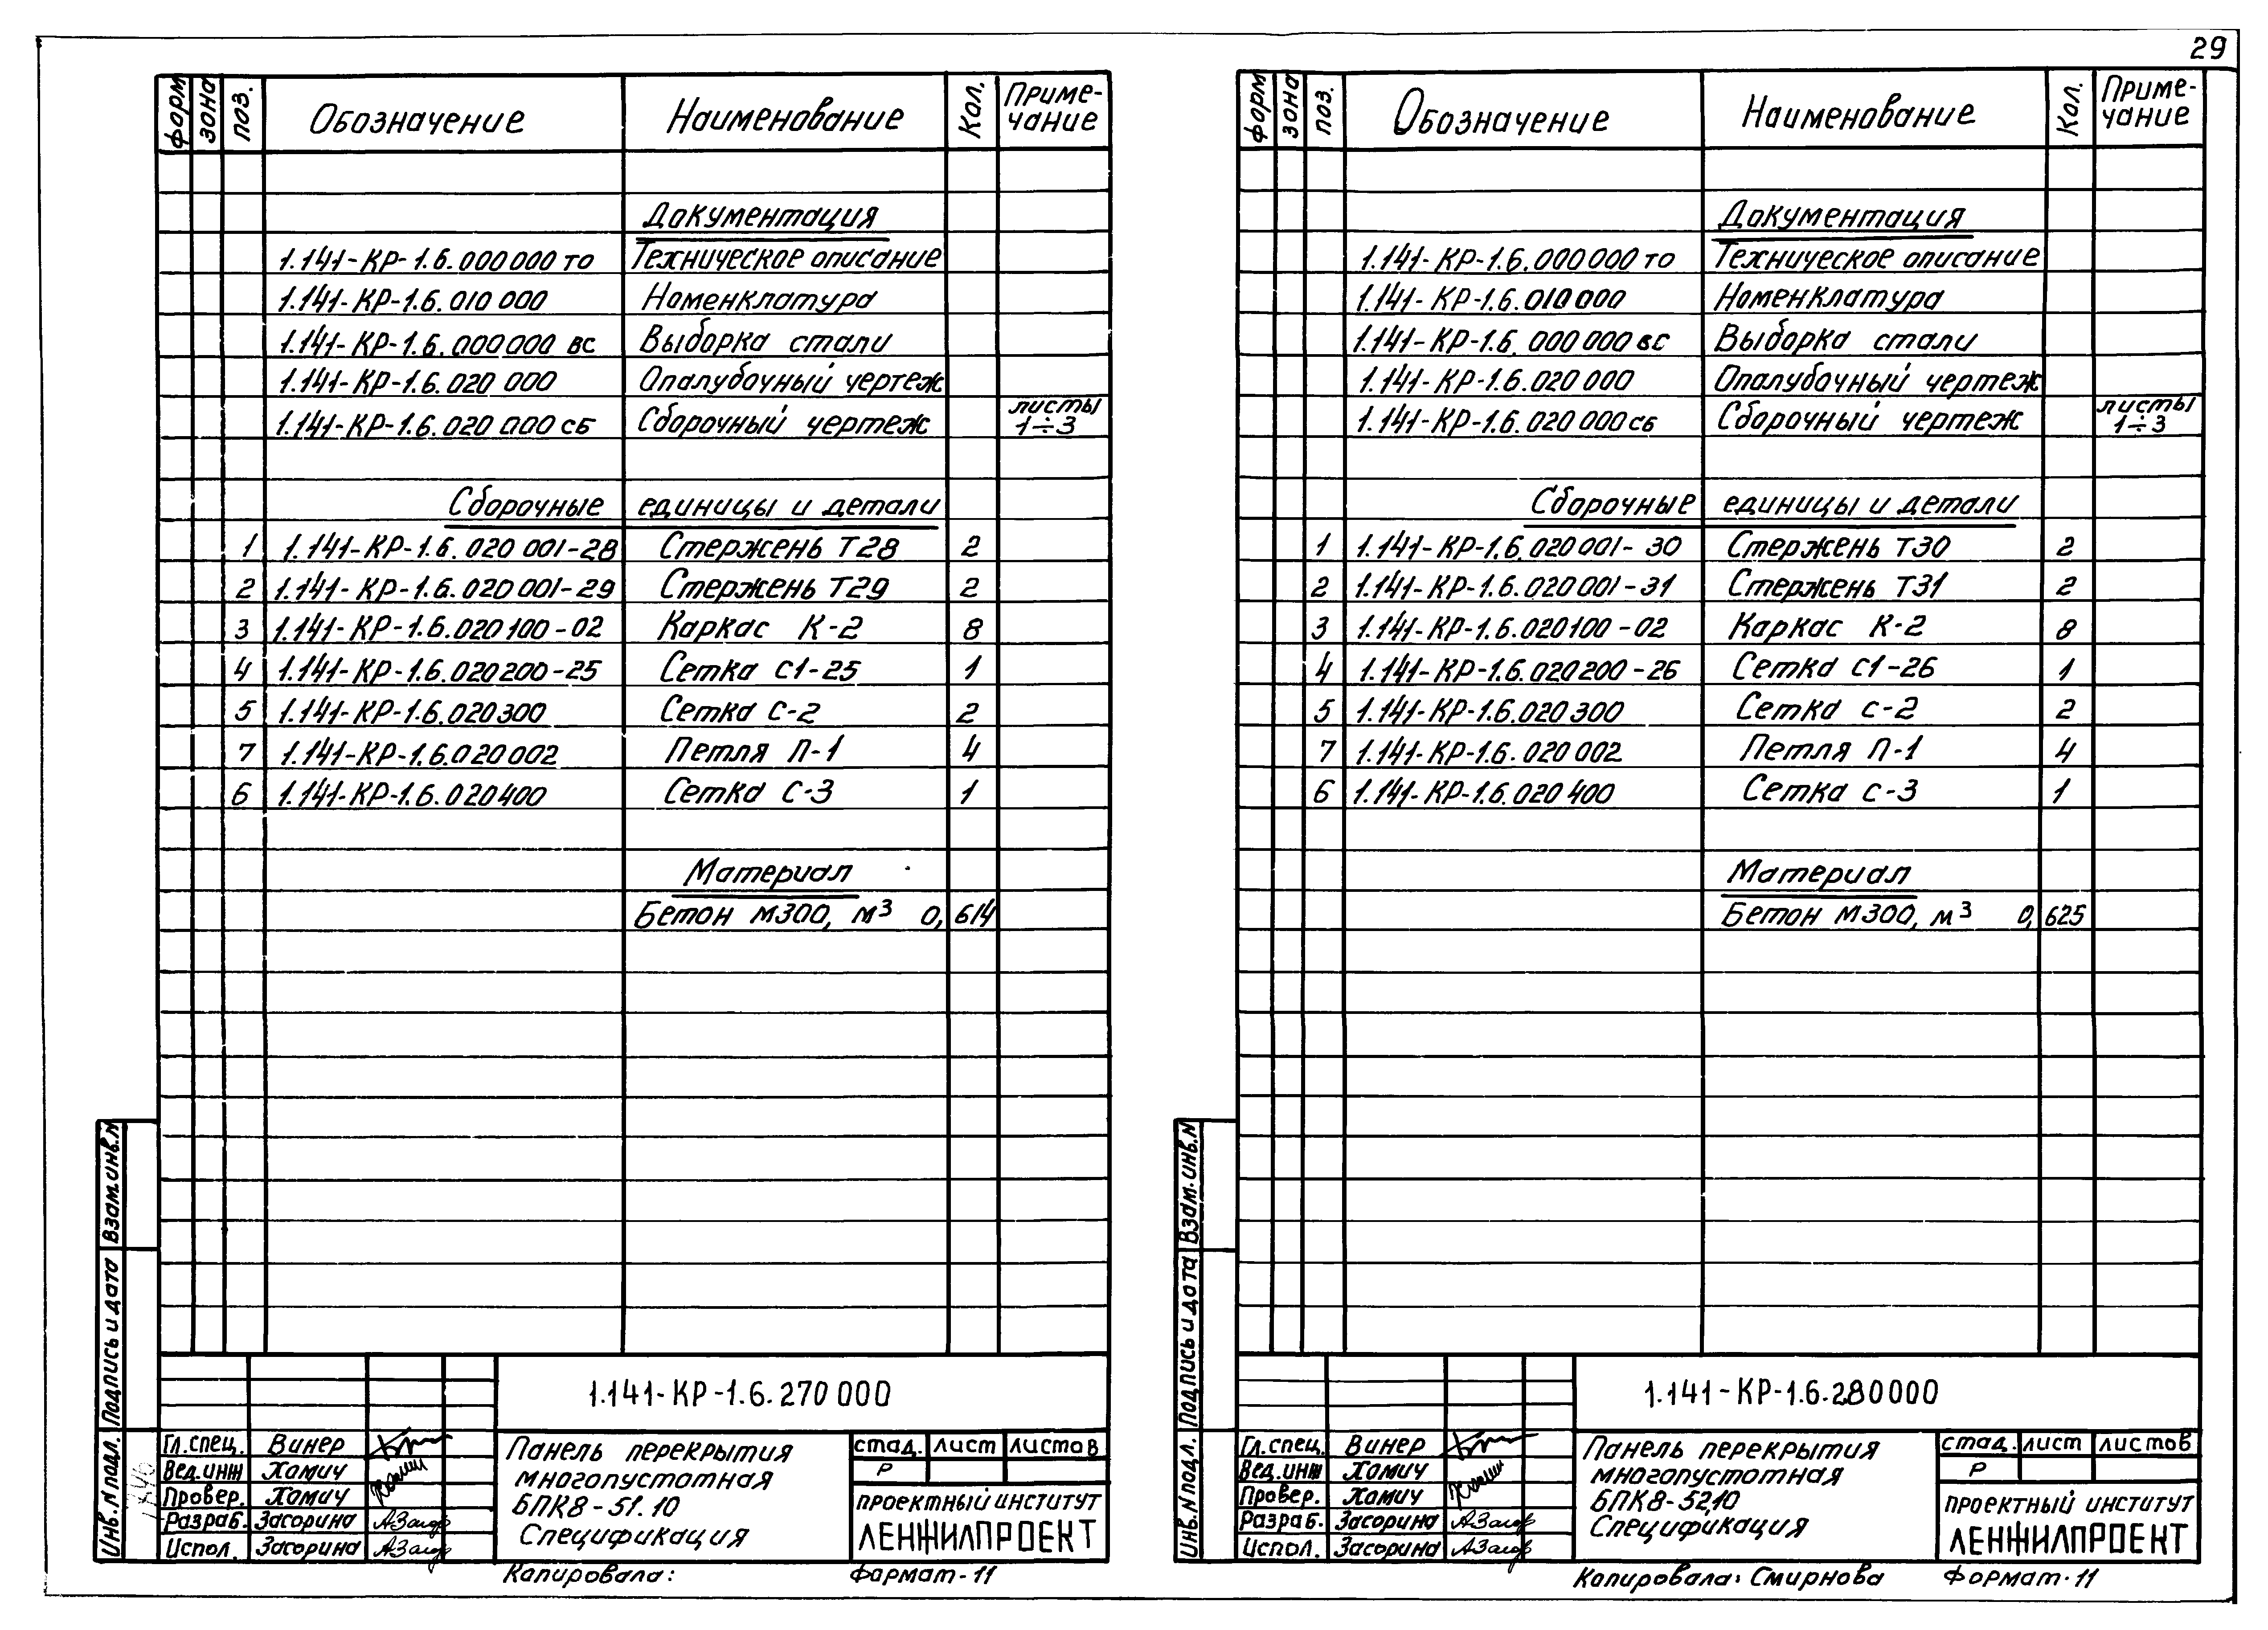 29
форм зона поз. Обозначение Наименование Кол. Приме-
чание
Документация
1.141-КР-1.6.000000 ТО Техническое описание
1.141-КР-1.6.010 000 Номенклатура
1.141-КР-1.6.000000 ВС Выборка стали
1.141-КР-1.6.020 000 Опалубочный чертеж
1.141-КР-1.6.020 000 СБ Сборочный чертеж листы
1÷3
Сборочные единицы и детали
1 1.141-КР-1.6.020 001-28 Стержень Т28 2
2 1.141-КР-1.6.020 001-29 Стержень Т29 2
3 1.141-КР-1.6.020100-02 Каркас К-2 8
4 1.141-КР-1.6.020200-25 Сетка С1-25 1
5 1.141-КР-1.6.020300 Сетка С-2 2
7 1.141-КР-1.6.020002 Петля П-1 4
6 1.141-КР-1.6.020400 Сетка С-3 1
Материал
Бетон М300, м³ 0,614
Взам.инв.N
Подпись и дата
Инв.N подл.
1.141-КР-1.6.270 000
Гл.спец. Винер
Вед.инж Хамич
Провер. Хамич
Разраб. Засорина
Испол. Засорина
Панель перекрытия
многопустотная
БПК8-51.10
Спецификация
стад. лист листов
Р
ПРОЕКТНЫЙ ИНСТИТУТ
ЛЕНЖИЛПРОЕКТ
Копировала: Формат-11
форм зона поз. Обозначение Наименование Кол. Приме-
чание
Документация
1.141-КР-1.6.000000 ТО Техническое описание
1.141-КР-1.6.010000 Номенклатура
1.141-КР-1.6.000000 ВС Выборка стали
1.141-КР-1.6.020000 Опалубочный чертеж
1.141-КР-1.6.020 000 СБ Сборочный чертеж листы
1÷3
Сборочные единицы и детали
1 1.141-КР-1.6.020001-30 Стержень Т30 2
2 1.141-КР-1.6.020001-31 Стержень Т31 2
3 1.141-КР-1.6.020100-02 Каркас К-2 8
4 1.141-КР-1.6.020200-26 Сетка С1-26 1
5 1.141-КР-1.6.020300 Сетка С-2 2
7 1.141-КР-1.6.020002 Петля П-1 4
6 1.141-КР-1.6.020400 Сетка С-3 1
Материал
Бетон М300, м³ 0,625
Взам.инв.N
Подпись и дата
Инв.N подл.
1.141-КР-1.6.280000
Гл.спец. Винер
Вед.инж Хамич
Провер. Хамич
Разраб. Засорина
Испол. Засорина
Панель перекрытия
многопустотная
БПК8-52.10
Спецификация
стад. лист листов
Р
ПРОЕКТНЫЙ ИНСТИТУТ
ЛЕНЖИЛПРОЕКТ
Копировала: Смирнова Формат-11